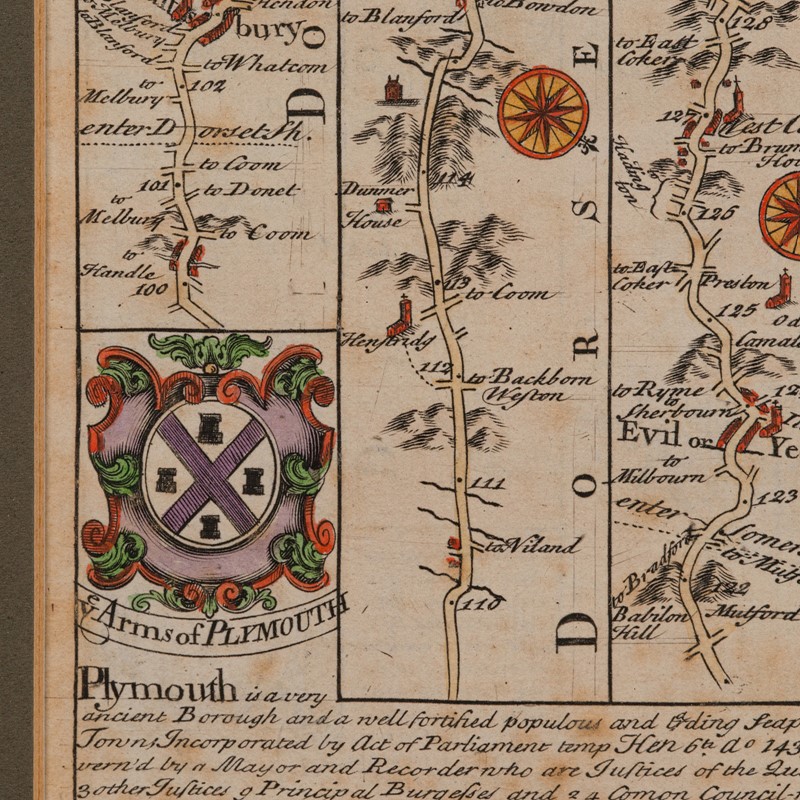 Hendon
bury
to Whatcom
102
to
Melbury
enter Dorset Sh.
to Coom
101
to Donet
to
Melbury
to Coom
to
Handle
100
ye Arms of PLYMOUTH
to Blanford
to Bowdon
114
Dunmer
House
113
to Coom
Henstridg
112
to Backborn
Weston
111
to Niland
110
DORSE
DO
128
to East
Coker
127
West
to Brum
Hou
Hading
ton
126
to East
Coker
Preston
125
Camal
to Ryme
to
Sherbourn
Evil or Ye
to
Milbourn
123
enter
Somer
to Bradford
122
Babilon
Hill
Mutford
Plymouth is a very
ancient Borough and a well fortified populous and trding Seap
Town, Incorporated by Act of Parliament temp Hen 6th Ao 143
vern'd by a Mayor and Recorder who are Justices of the Qu
3 other Justices 9 Principal Burgesses and 24 Comon Council-